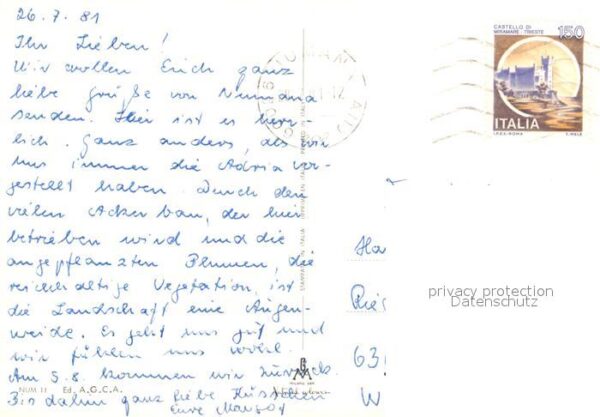 26.7.81
Ihr Lieben!
Wir wollen Euch ganz
liebe Grüße von Numana
senden. Hier ist es herr-
lich. Ganz anders, als wir
uns immer die Adria vor-
gestellt haben. Durch den
vielen Ackerbau, der hier
betrieben wird und die
angepflanzten Blumen, die
reichhaltige Vegetation, ist
die Landschaft eine Augen-
weide. Es geht uns gut und
wir fühlen uns wohl.
Am 5.8. kommen wir zurück.
Bis dahin ganz liebe Küsschen
Eure
NUM 11 Ed. A.G.C.A.
CASTELLO DI
MIRAMARE - TRIESTE
150
ITALIA
I.P.Z.S. - ROMA
privacy protection
Datenschutz
Ha
Ries
63
W